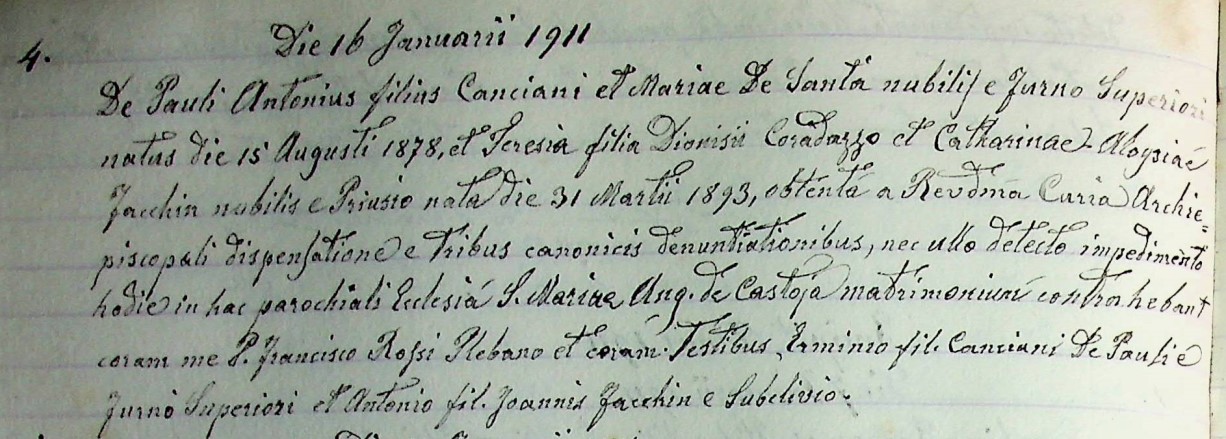 4.
Die 16 Januarii 1911
De Pauli Antonius filius Canciani et Mariae De Santa nubilis e Jurno Superiori
natus die 15 Augusti 1878, et Teresia filia Dionisii Coradazzo et Catharinae-Aloysiae
Jacchin nubilis e Priusio nata die 31 Martii 1893, obtenta a Revdma Curia Archie=
piscopali dispensatione e tribus canonicis denuntiationibus, nec ullo detecto impedimento
hodie in hac parochiali Ecclesia S. Mariae Ang. de Castoja matrimonium contrahebant
coram me P. Francisco Rossi Plebano et coram Testibus Erminio fil. Canciani De Pauli e
Jurno Superiori et Antonio fil. Joannis Jacchin e Subclivio.